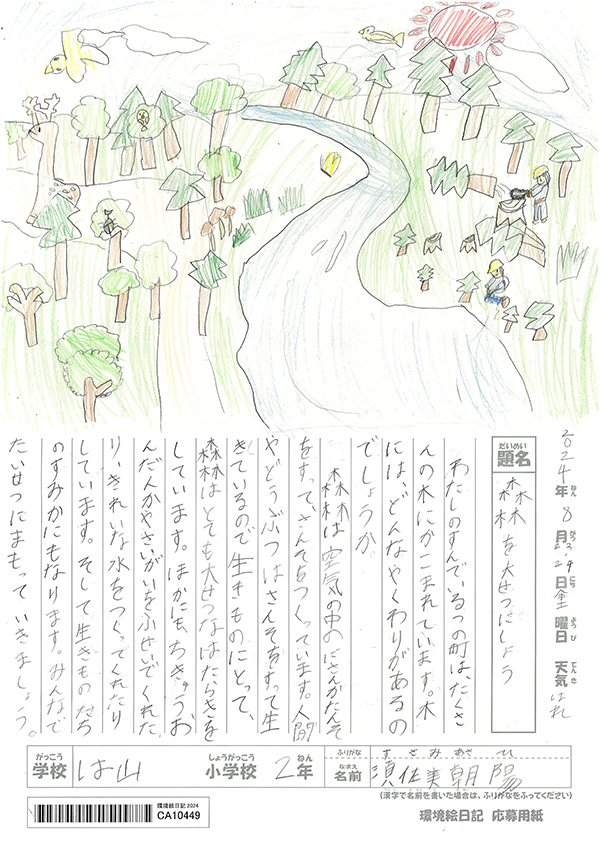 2024年 8月 23.24日 金 曜日 天気 はれ
だいめい
題名 森林を大せつにしよう
わたしのすんでいるつの町は、たくさ
んの木にかこまれています。木
にはどんなやくわりがあるの
でしょうか。
森林は空気の中のにさんかたんそ
をすって、さんそをつくっています。人間
やどうぶつはさんそをすって生
きているので生きものにとって、
森林はとても大せつなはたらきを
しています。ほかにも、ちきゅうお
んだんかやさいがいをふせいでくれた
り、きれいな水をつくってくれたり
しています。そして生きものたち
のすみかにもなります。みんなで
たいせつにまもっていきましょう。
がっこう しょうがっこう ねん ふりがな すさみ あさひ
学校 は山 小学校 2年 なまえ 名前 須佐美朝陽
(漢字で名前を書いた場合は、ふりがなをふってください)
環境絵日記 2024
CA10449
環境絵日記 応募用紙